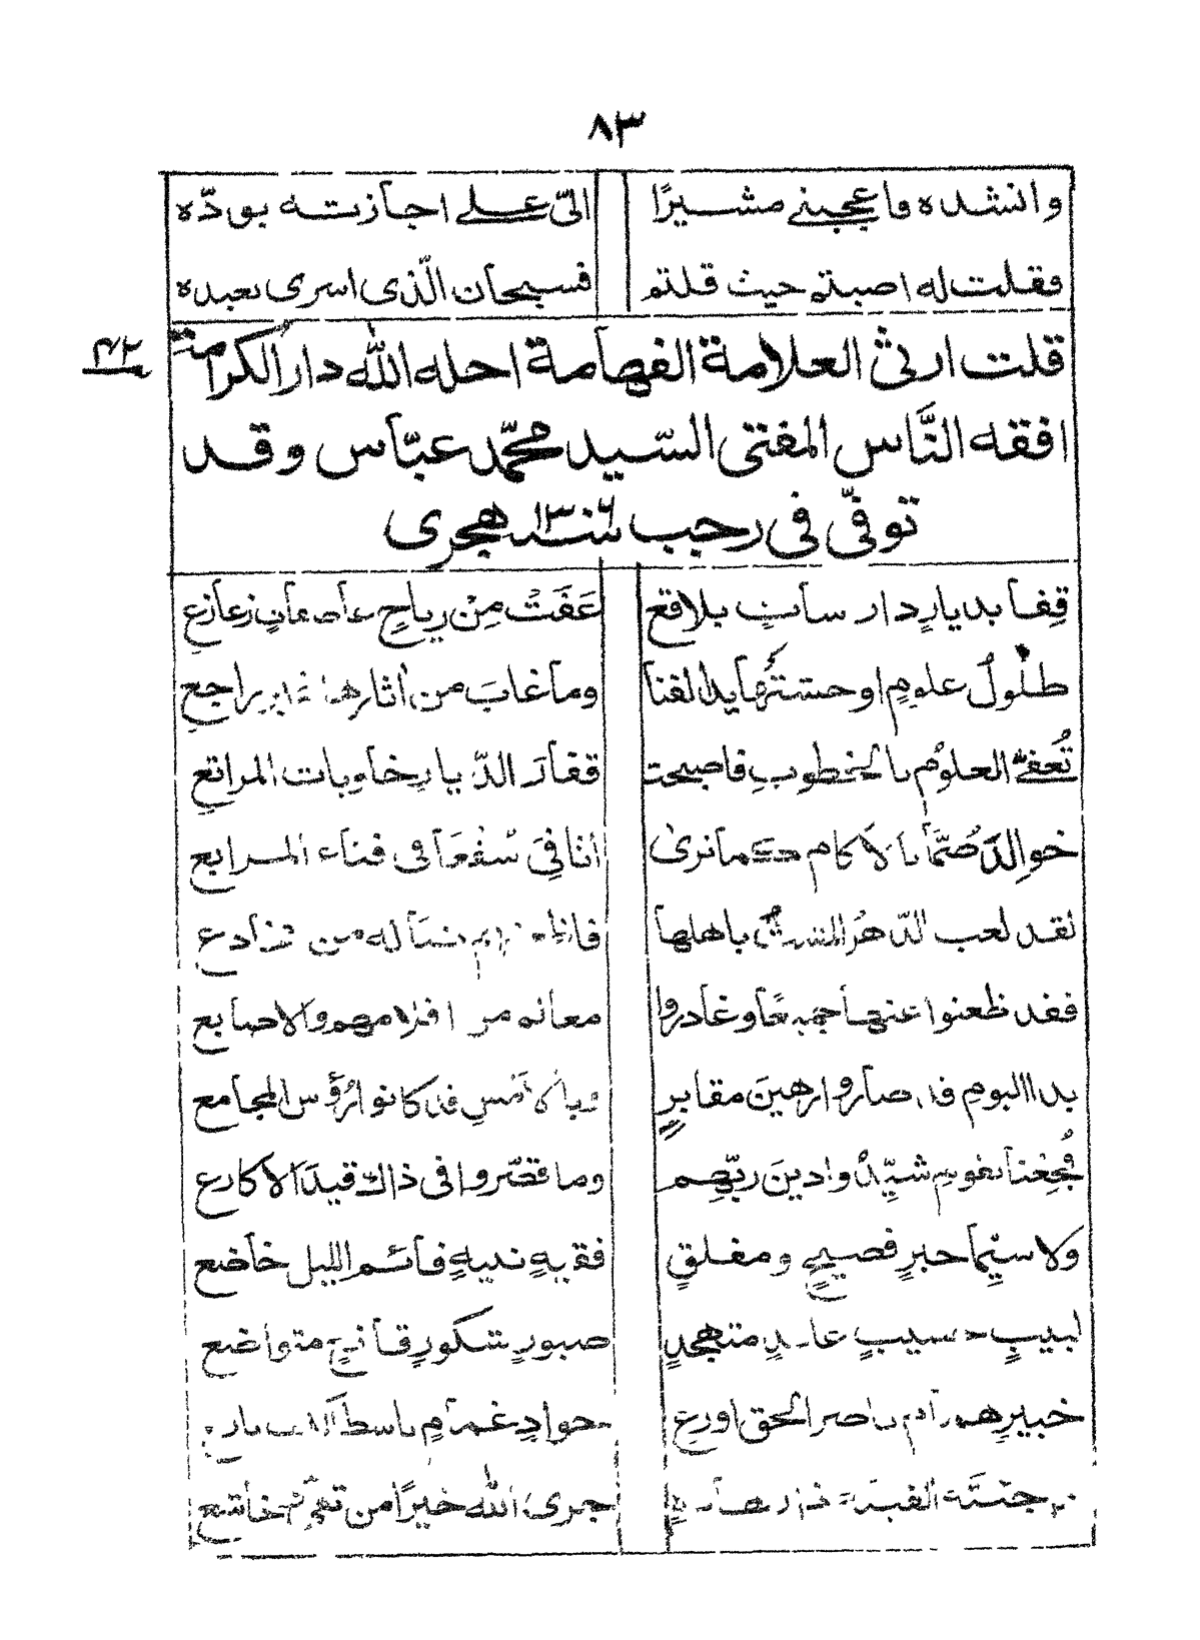 ٨٣
وانشده فاعجبنے مشيرًا الیّ علے اجازته بودّه
فقلت له اصبتم حيث قلتم فسبحان الّذى اسرى بعبده
٤٢
قلت ارثى العلامة الفهامة احله الله دار الكرامة
افقه النَّاس المفتى السّيد محمّد عبّاس وقد
توفّى فى رجب سنه ١٣٠٦ هجرى
قِفا بديارٍ دار بلاقع عَفَتْ مِن رياحٍ زعازع
طلولُ علومٍ اوحشتها يد الفنا وما غابَ من اٰثارها غير راجعِ
تُعفّے العلوُم بالخطوبِ فاصبحت قفارَ الدّيارِ خاويات المراتعِ
خوالدَ صُمًّا بالاكام كما نرىٰ اثافِىَ سُفْعًا فى فناء المرابع
لقد لعب الدّهرُ باهلها له من
فقد ظعنوا عنها جميعًا وغادروا معانه من اقلامهم والاصابع
بدا اليومِ قد صاروا ارهينَ مقابرٍ وبالامسِ قد كانوا رُؤس المجامع
فُجِعْنا بقومٍ شيِّدُوا دينَ ربّهِم وما قصّروا فى ذاك قيدَ الاكارع
ولا سيِّما حبرٍ فصيحٍ ومفلقٍ فقيهٍ نبيهٍ قائم الليل خاضع
لبيبٍ حسيبٍ عابدٍ متهجدٍ صبورٍ شكورٍ قانعٍ متواضع
خبيرٍ همامٍ ناصر الحق اورعٍ جوادٍ غمامٍ باسط الكف بارع
جزى الله خيرًا من خاشع